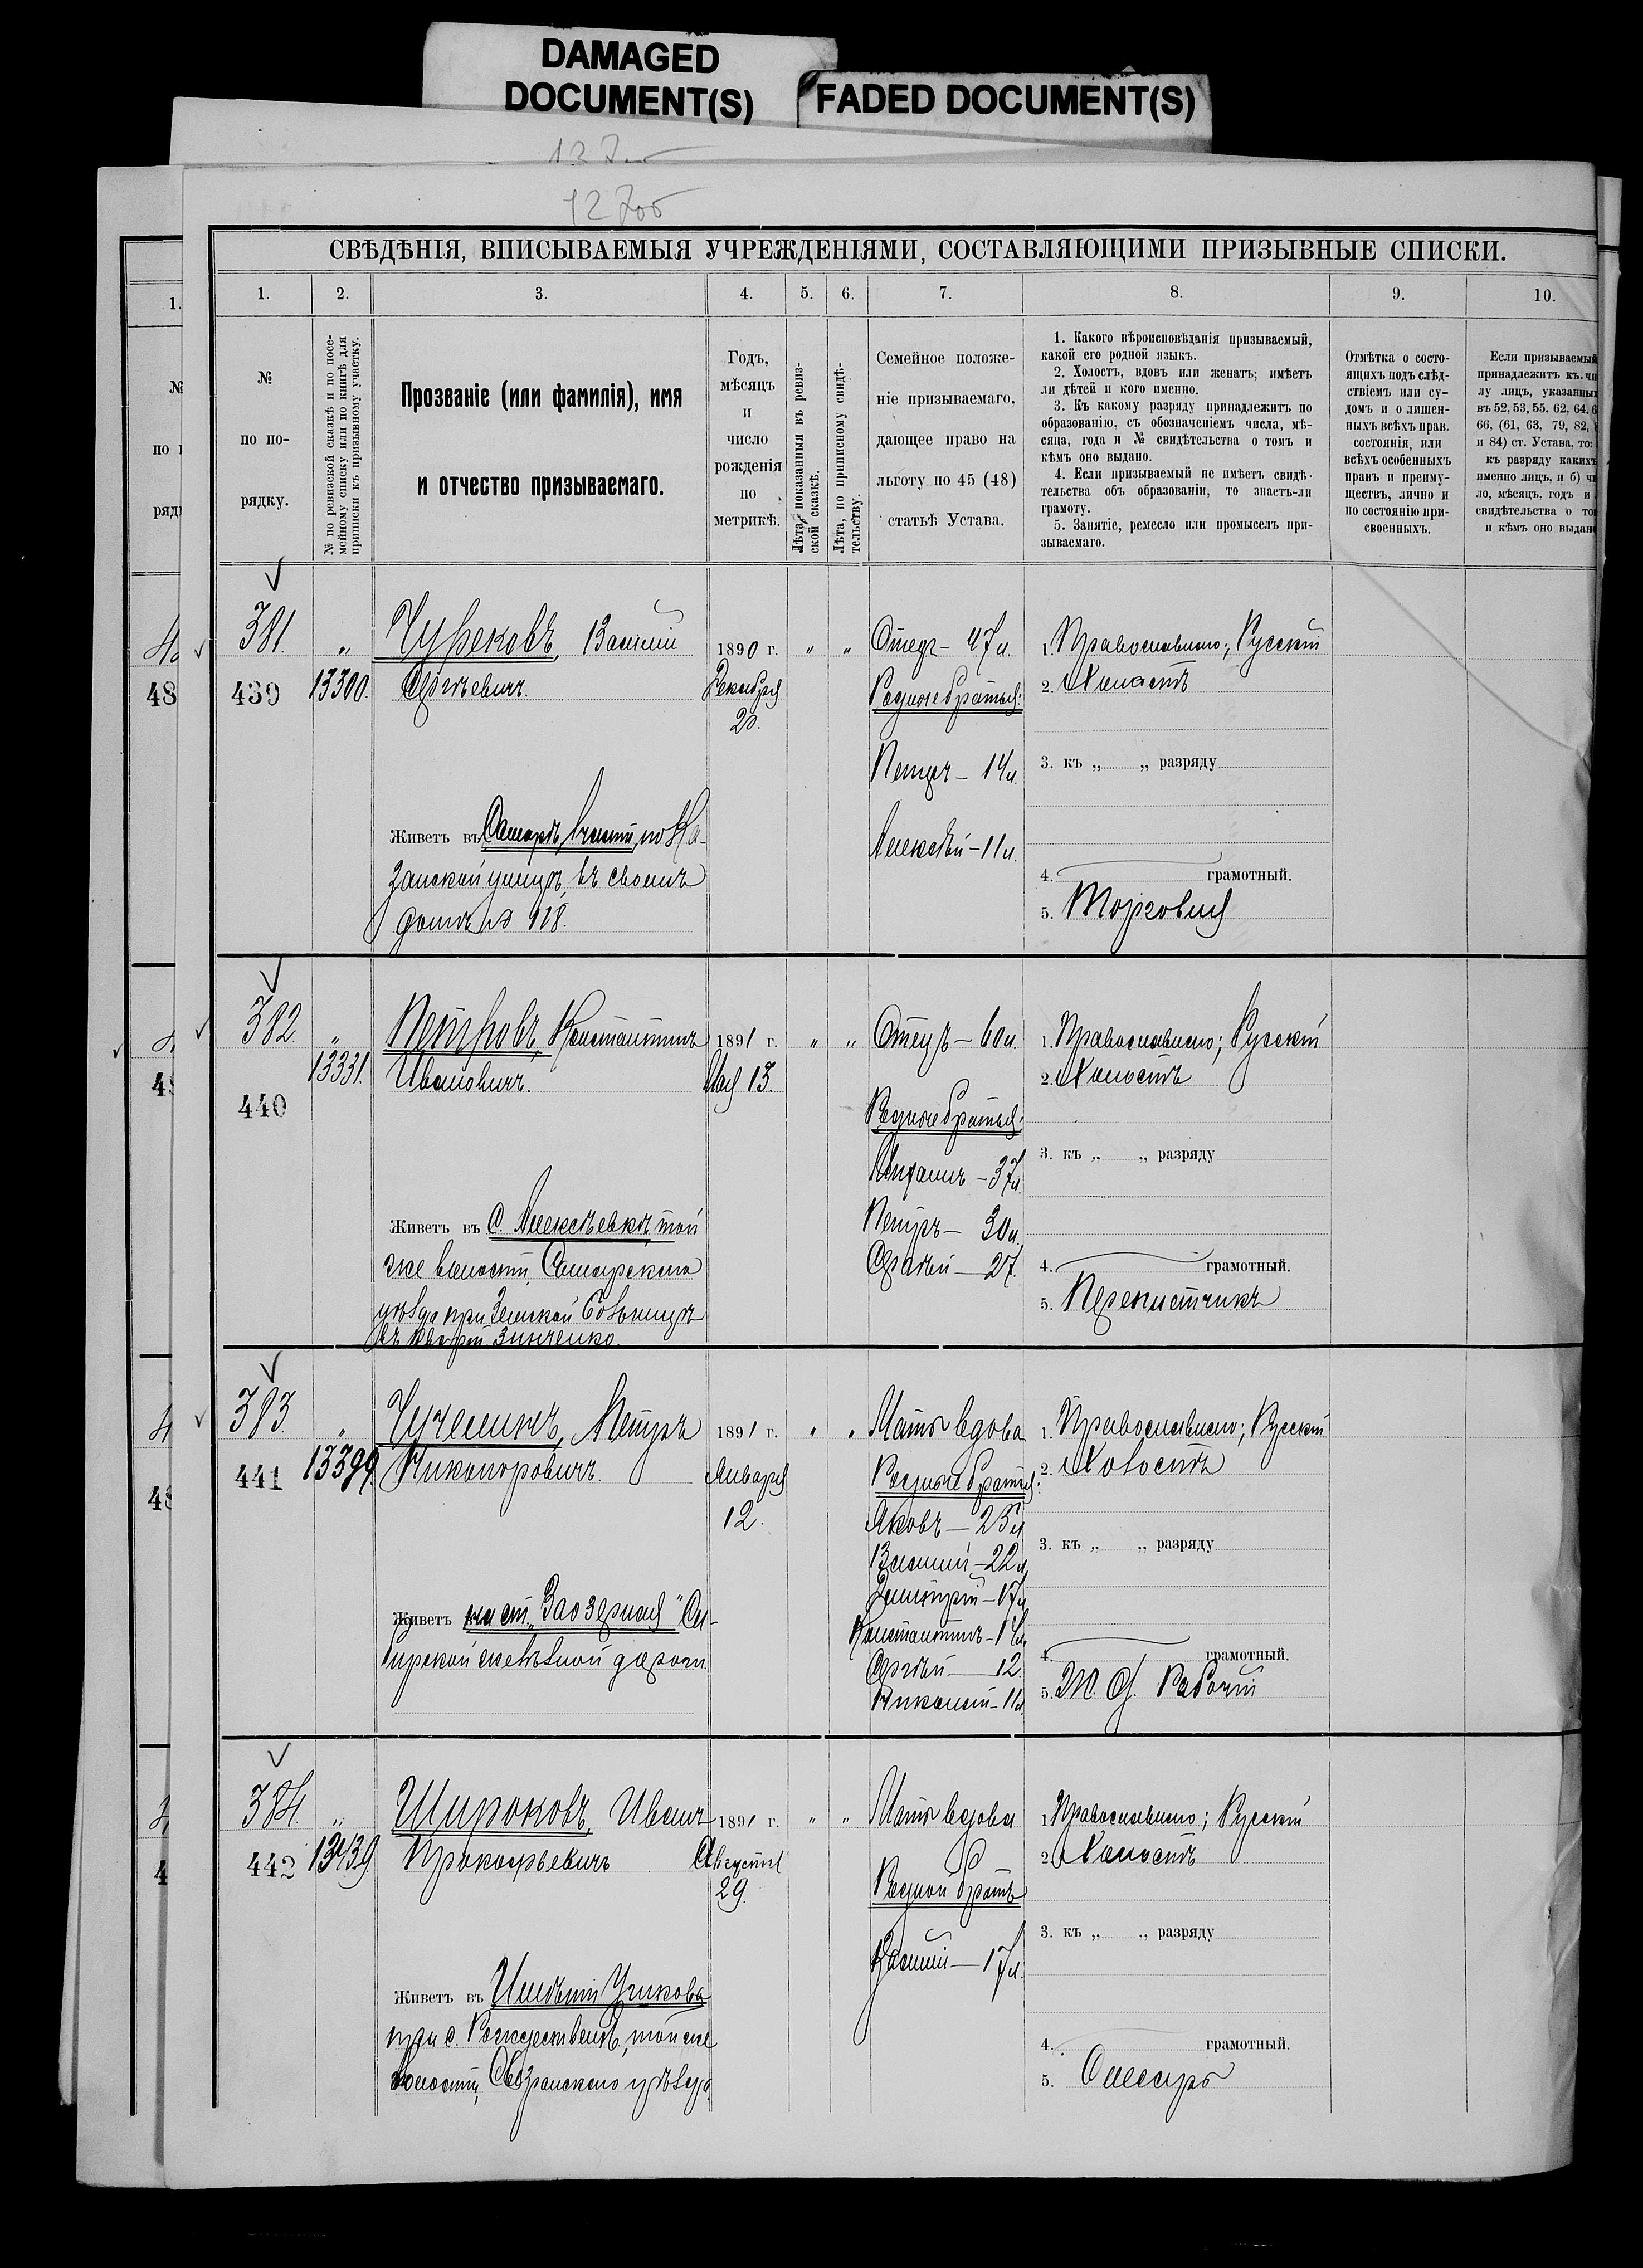 DAMAGED
DOCUMENT(S)
FADED DOCUMENT(S)
СВѢДѢНІЯ, ВПИСЫВАЕМЫЯ УЧРЕЖДЕНІЯМИ, СОСТАВЛЯЮЩИМИ ПРИЗЫВНЫЕ СПИСКИ.
1. 2. 3. 4. 5. 6. 7. 8. 9. 10.
№
по по-
рядку.
№ по ревизской сказкѣ и по посе-
мейному списку или по книгѣ для
приписки къ призывному участку.
Прозваніе (или фамилія), имя
и отчество призываемаго.
Годъ,
мѣсяцъ
и
число
рожденія
по
метрикѣ.
Лѣта, показанныя въ ревиз-
ской сказкѣ.
Лѣта, по приписному свидѣ-
тельству.
Семейное положе-
ніе призываемаго,
дающее право на
льготу по 45 (48)
статьѣ Устава.
1. Какого вѣроисповѣданія призываемый,
какой его родной языкъ.
2. Холостъ, вдовъ или женатъ; имѣетъ
ли дѣтей и кого именно.
3. Къ какому разряду принадлежитъ по
образованію, съ обозначеніемъ числа, мѣ-
сяца, года и № свидѣтельства о томъ и
кѣмъ оно выдано.
4. Если призываемый не имѣетъ свидѣ-
тельства объ образованіи, то знаетъ-ли
грамоту.
5. Занятіе, ремесло или промыселъ при-
зываемаго.
Отмѣтка о состо-
ящихъ подъ слѣд-
ствіемъ или су-
домъ и о лишен-
ныхъ всѣхъ прав.
состоянія, или
всѣхъ особенныхъ
правъ и преиму-
ществъ, лично и
по состоянію при-
своенныхъ.
Если призываемый
принадлежитъ къ чи
лу лицъ, указанны
въ 52, 53, 55. 62, 64.
66, (61, 63, 79, 82,
и 84) ст. Устава, то:
къ разряду какихъ
именно лицъ, и б) чи
ло, мѣсяцъ, годъ и
свидѣтельства о то
и кѣмъ оно выдан
381. „ Чурековъ, Василій 1890 г. „ „ Отецъ - 47 л. 1. Православнаго; Русскій
439 13300. Сергѣевичъ. Декабря Родные братья: 2. Холостъ
20.
Петръ - 14 л. 3. къ „ „ разряду
Живетъ въ Самарѣ, части, по Ка- Алексѣй - 11 л.
занской улицѣ, въ своемъ 4. грамотный.
домѣ № 118. 5. Торговля
382. „ Петровъ, Константинъ 1891 г. „ „ Отецъ - 60 л. 1. Православнаго; Русскій
13331. Ивановичъ. Мая 13. 2. Холостъ
440 Родные братья:
Михаилъ - 37 л. 3. къ „ „ разряду
Живетъ въ с. Алексѣевкѣ, той Петръ - 30 л.
же волости, Самарскаго Сергѣй - 27. 4. грамотный.
уѣзда при Земской больницѣ 5. Переписчикъ
въ кварт. Зинченко.
383. „ Чучелинъ, Петръ 1891 г. „ „ Мать вдова 1. Православнаго; Русскій
441 13399. Никаноровичъ. Января Родные братья: 2. Холостъ
12. Яковъ - 25 л.
Василій - 22 л. 3. къ „ „ разряду
Дмитрій - 17 л.
Живетъ на ст. „Заозерная" Си- Константинъ - 14 л.
бирской желѣзной дороги. Сергѣй - 12. 4. грамотный.
Николай - 11 л. 5. Ж. д. рабочій
384. „ Широковъ, Иванъ 1891 г. „ „ Мать вдова 1. Православнаго; Русскій
442 13439. Прокофьевичъ Августа 2. Холостъ
29. Родной братъ
Василій - 17 л. 3. къ „ „ разряду
Живетъ въ Имѣніи Ушкова
при с. Рождественѣ, той же 4. грамотный.
волости, Сызранскаго уѣзда. 5. Слесарь